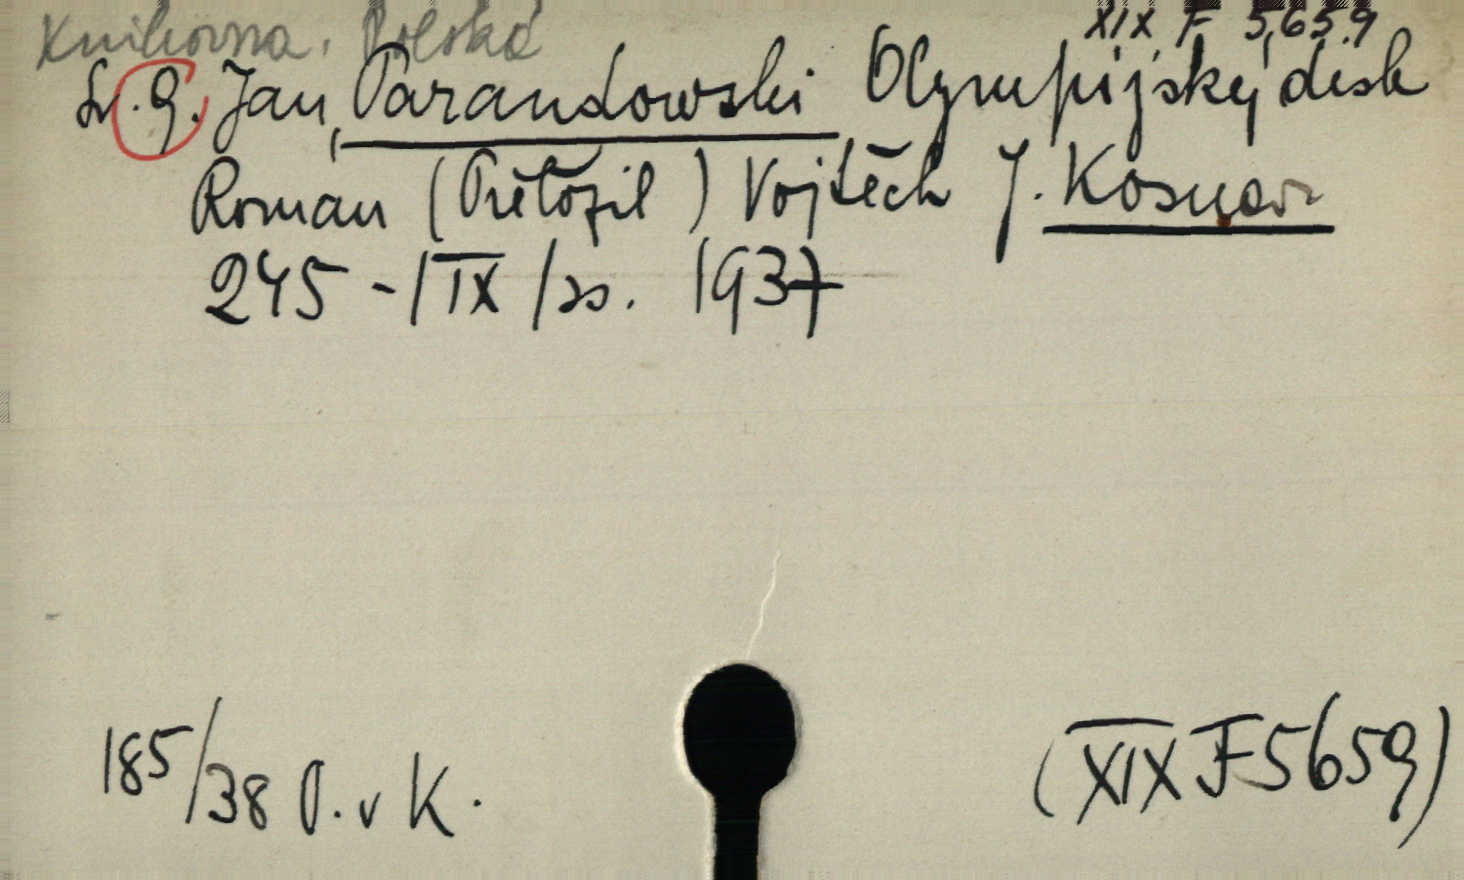 Knihovna, Polská
XIX F 5,65.9
Sv. 9. Jan Parandowski Olympijský disk
Roman (Přeložil) Vojtěch J. Kosnar
245 - |IX| s. 1937
185/38 O. v K.
(XIX F 5659)